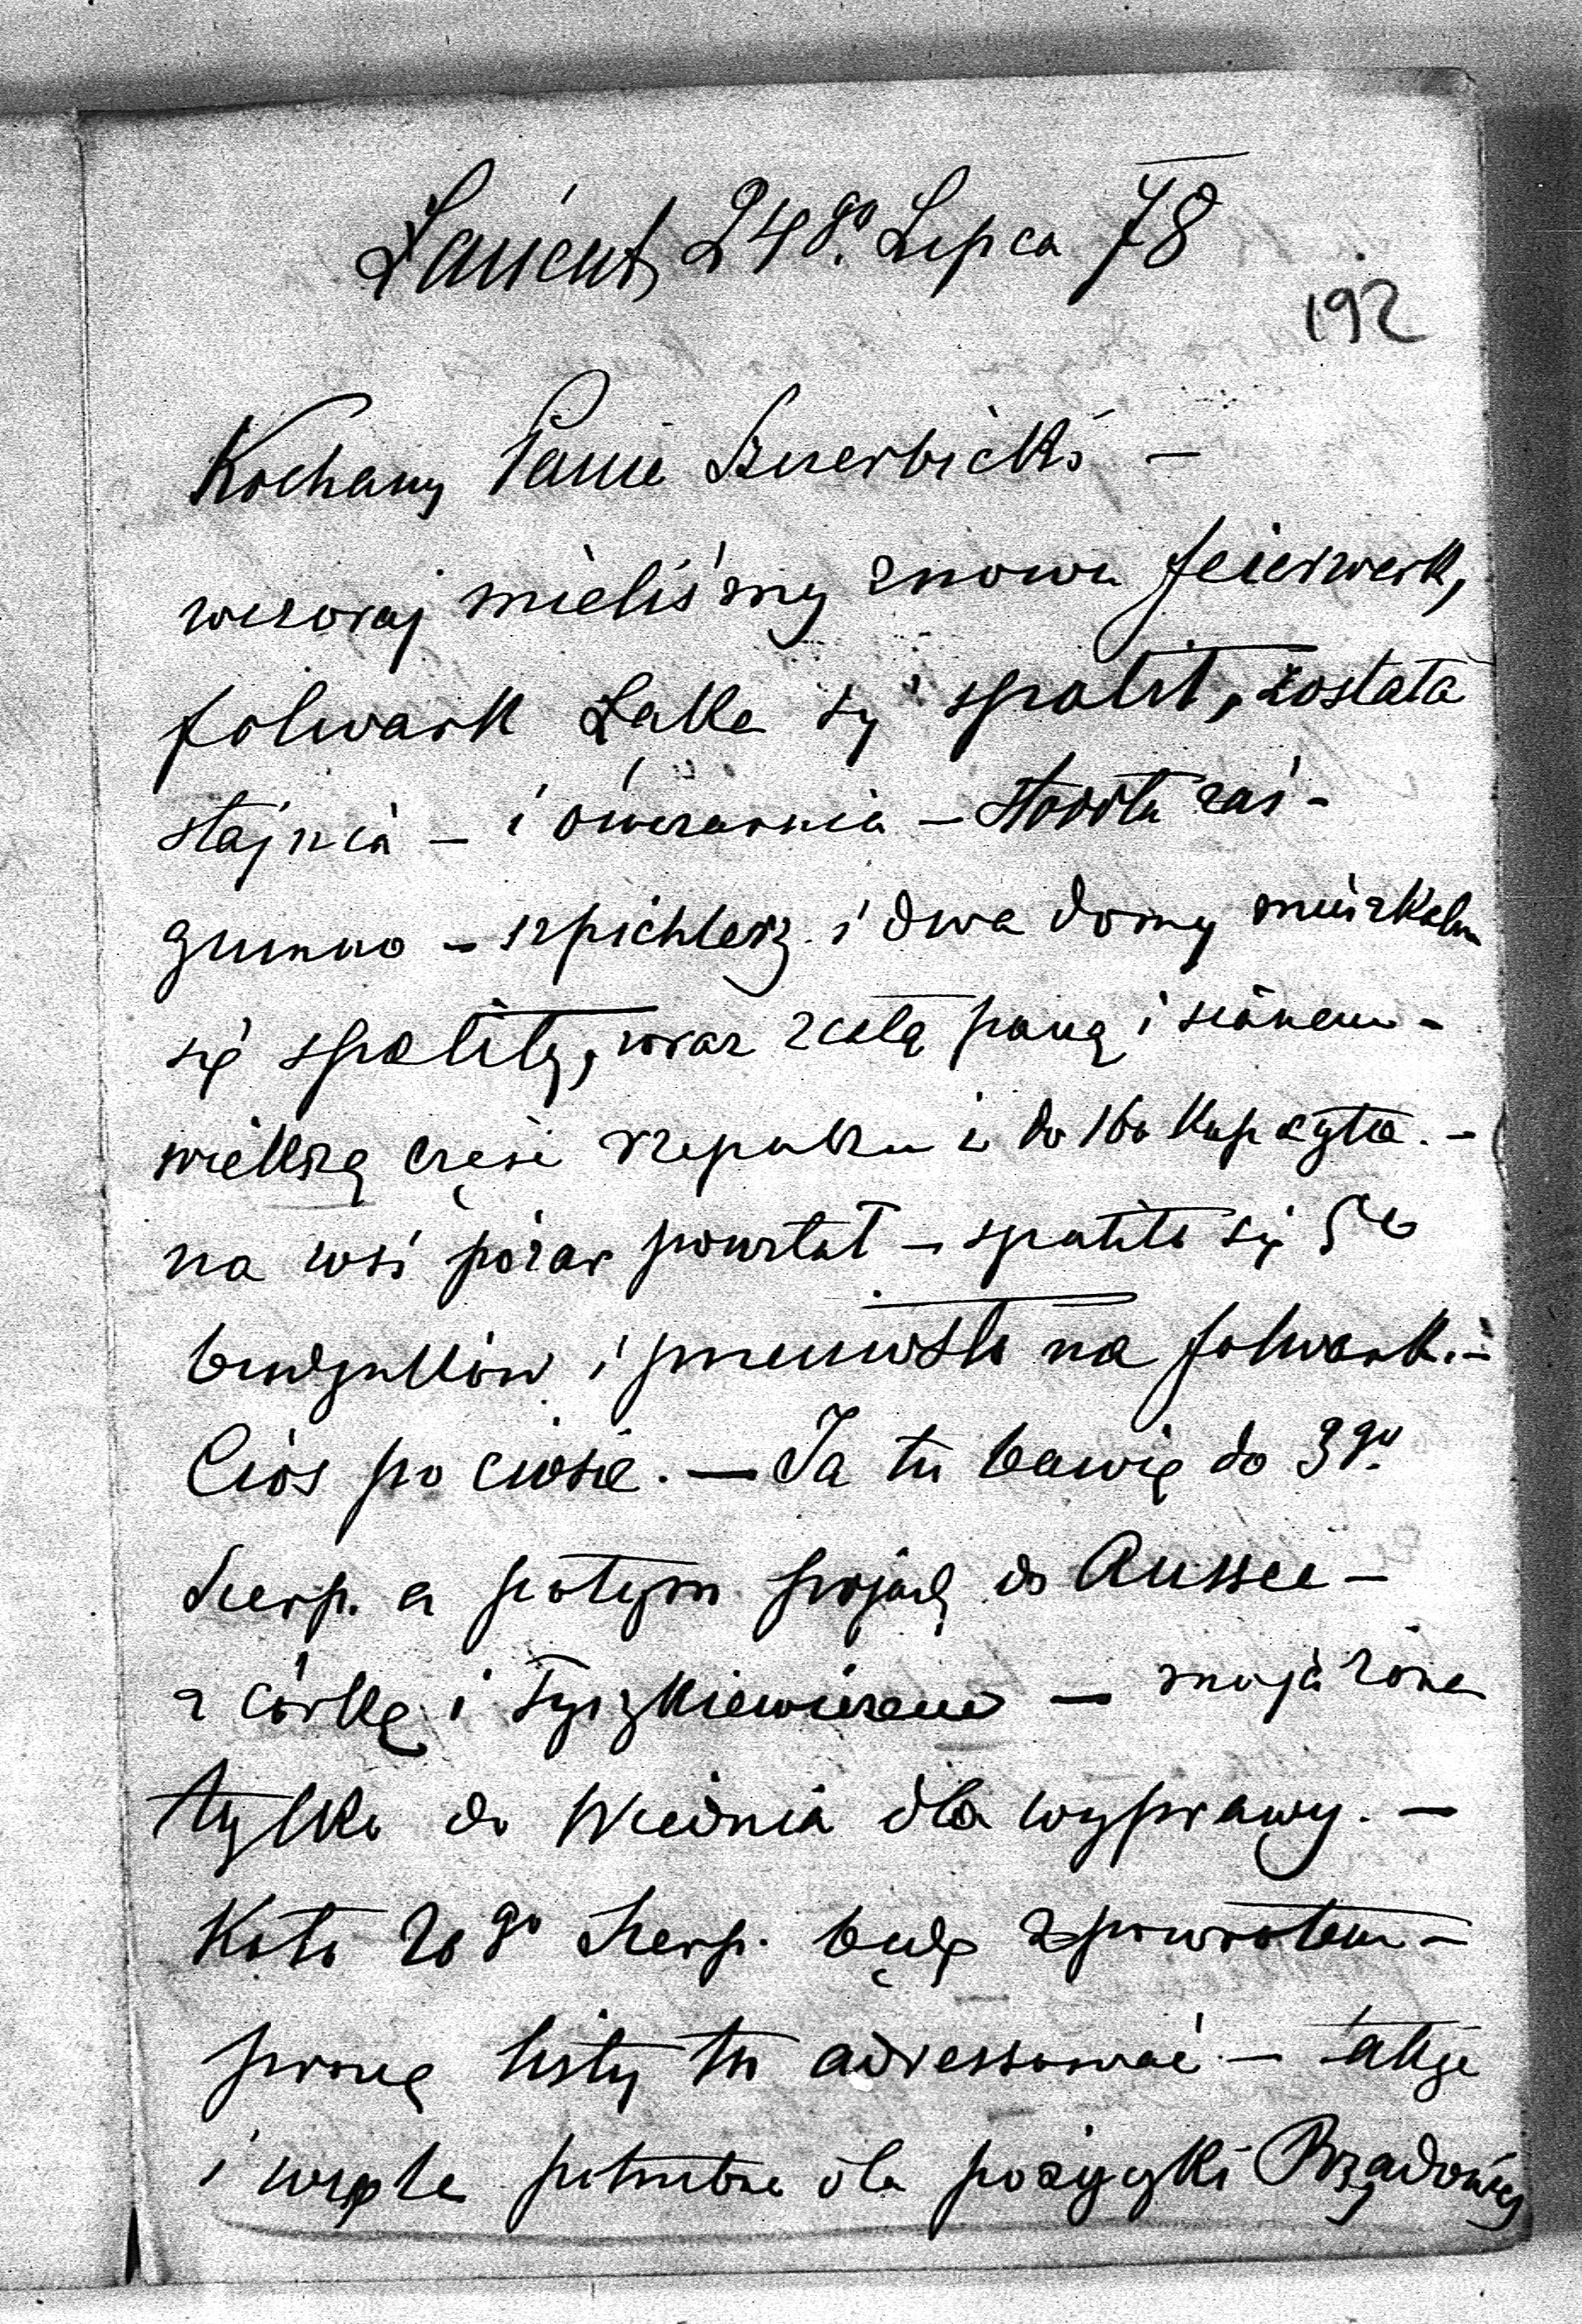 Łańcut, 24go. Lipca 78
192
Kochany Panie Szczerbicki –
wczoraj mieliśmy znowu feierwerk,
folwark Łąka się spalił, została
stajnia – i owczarnia – stodoła zaś –
gumno – szpichlerz i dwa domy mieszkalne
się spaliły, wraz z całą paszą i sianem –
większą część rzepaku i do 160 kup żyta. –
na wsi pożar powstał – spaliło się 50
budynków i przeniosło na folwark. –
Cios po ciosie. – Ja tu bawię do 3go.
Sierp. a potym pojadę do Aussee –
z córką i Tyszkiewiczem – moja żona
tylko do Wiednia dla wyprawy. –
Koło 20go Sierp. będę z powrotem –
proszę listy tu adressować – akcje
i potrzebne dla pożyczki Rządowej